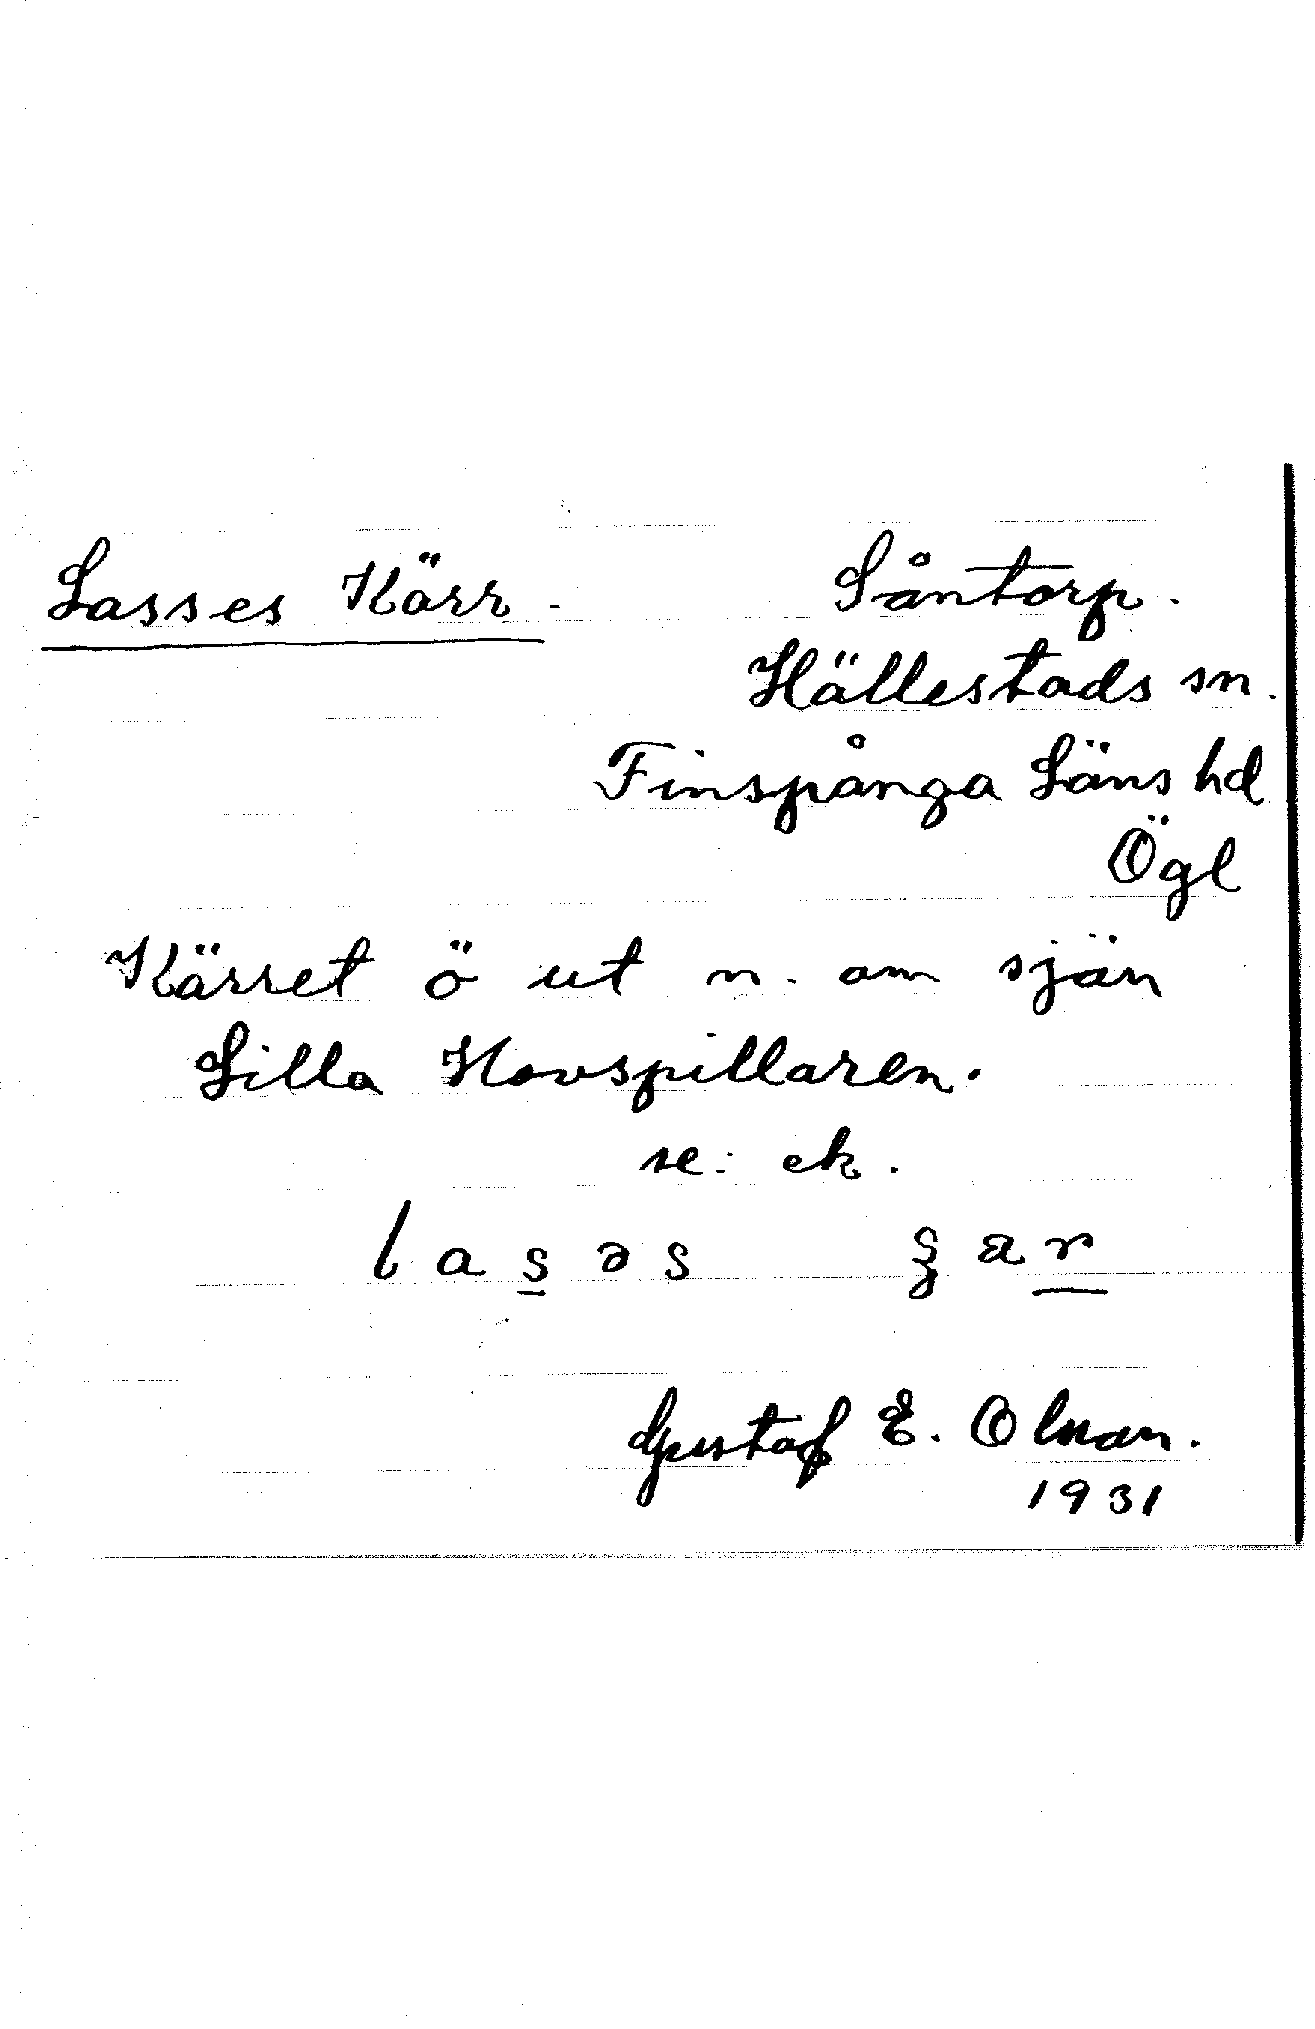 Lasses Kärr.
Såntorp.
Hällestads sn.
Finspånga Läns hd
Ögl
Kärret ö ut n. om sjön
Lilla Hovspillaren.
se: ek.
l a s ə s
Gustaf E. Olsson.
1931